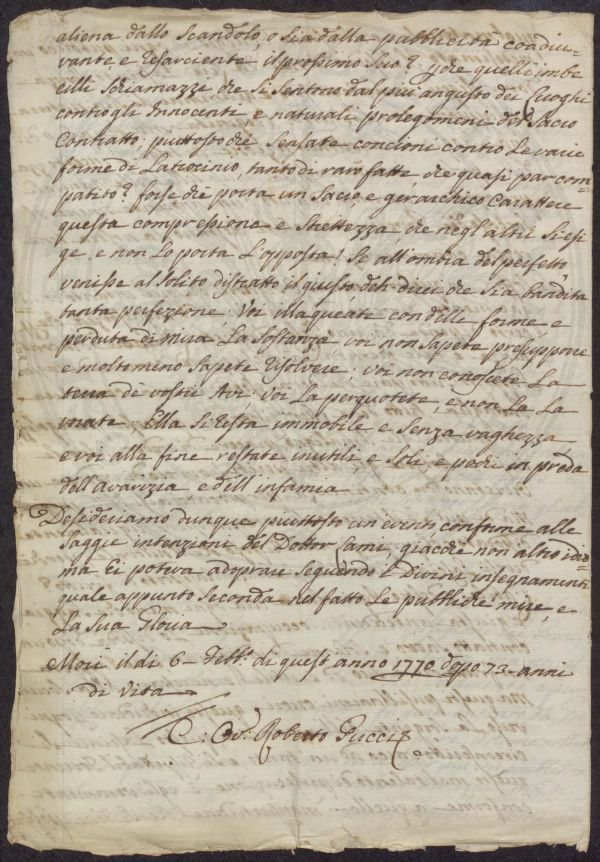 aliena dallo Scandolo, o sia dalla pubblicità coadiu-
vante, e resarciente il prossimo suo? che quelli imbe
cilli schiamazzi, che si sentono dal più angusto dei Luoghi
contro gli Innocenti, e naturali prolegomeni del Sacro
Contratto, piuttosto che sensate concioni contro le varie
forme di Latrocinio, tanto di raro fatte, che quasi par com=
patito? forse che porta un Sacro, e gerarchico Carattere
questa compressione e Strettezza, che negl'altri si esi
ge, e non Lo porta L'opposta! Se all'ombra del perfetto
venisse al Solito distratto il giusto, deh dirci che Sia bandita
tanta perfezione; Voi illaqueate con delle forme e
perduta di mira La Sostanza, voi non Sapete presupporre
e molto meno Sapete risolvere; voi non conoscete La
terra de vostri Avi, voi La perquotete, e non La La
vorate; Ella Si resta immobile e Senza vaghezza
e voi alla fine restate inutili, e Soli, e pochi in preda
dell'avarizia, e dell'infamia
Desideriamo dunque piuttosto un evento conforme alle
Sagge intenzioni del Dottor Lami, giacchè non altro idio=
ma Ei poteva adoprare seguendo i Divini insegnamenti
quale appunto Seconda nel fatto Le pubbliche mire, e
La Sua Gloria
Morì il dì 6 Febb: di quest'anno 1770 dopo 73 anni
di vita
C. Cav: Roberto Pucci